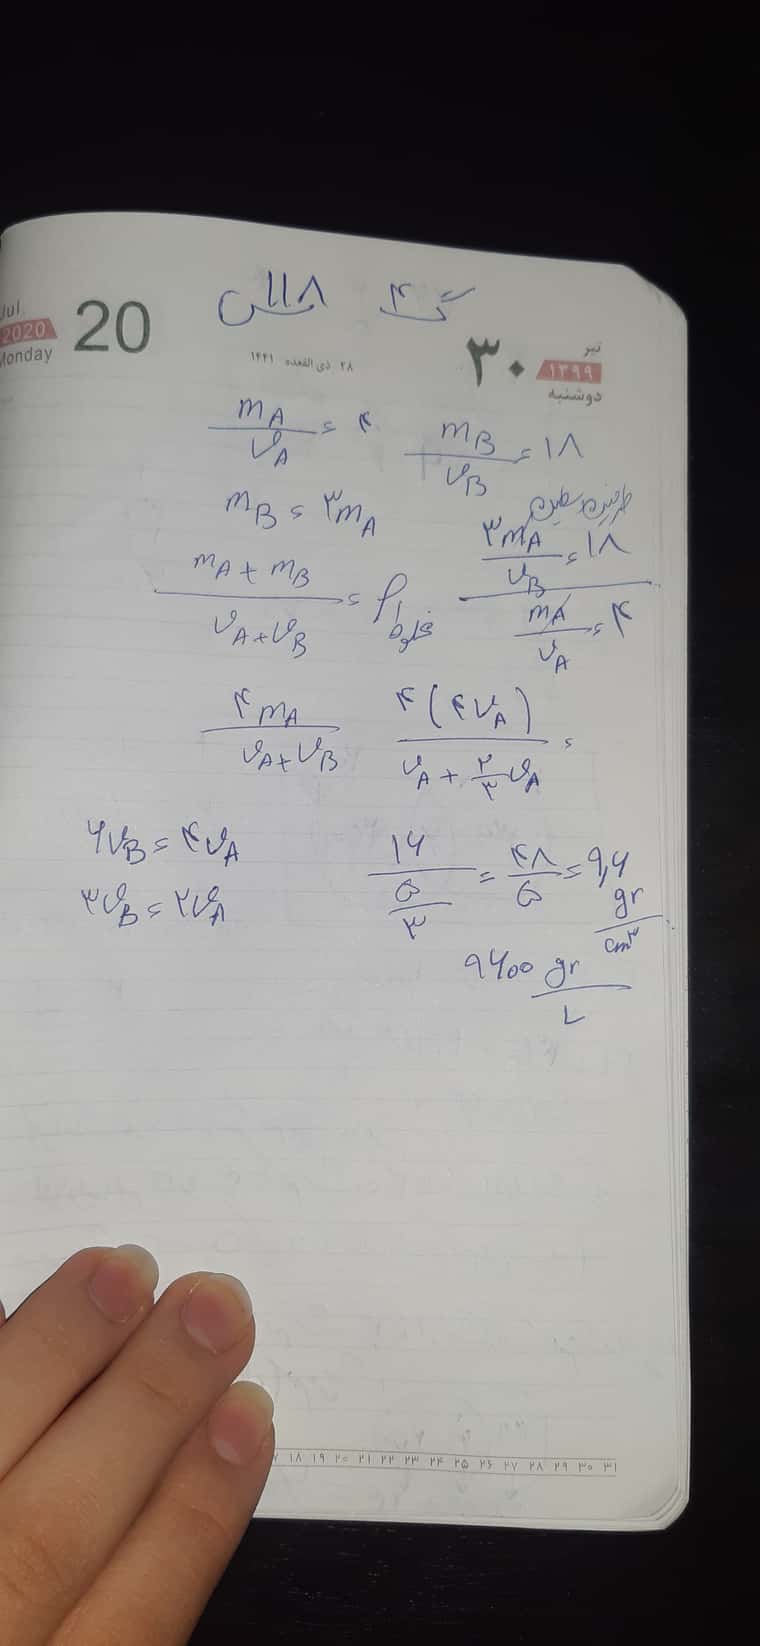 گ ۴ ۱۱۸س
Jul
2020
Monday
20
۲۸ ذی القعده ۱۴۴۱
۳۰
تیر
۱۳۹۹
دوشنبه
mA/vA = ۴
mB/vB = ۱۸
mB = ۳mA
طرفین وسطین
۳mA/vB = ۱۸
mA/vA = ۴
(mA + mB)/(vA + vB) = ρ مخلوط
۴mA/(vA + vB)
۴(۴vA)/(vA + ۲/۳ vA) =
۶vB = ۴vA
۳vB = ۲vA
۱۶/(۵/۳) = ۴۸/۵ = ۹٫۶ gr/cm³
۹۶۰۰ gr/L
۱۸ ۱۹ ۲۰ ۲۱ ۲۲ ۲۳ ۲۴ ۲۵ ۲۶ ۲۷ ۲۸ ۲۹ ۳۰ ۳۱